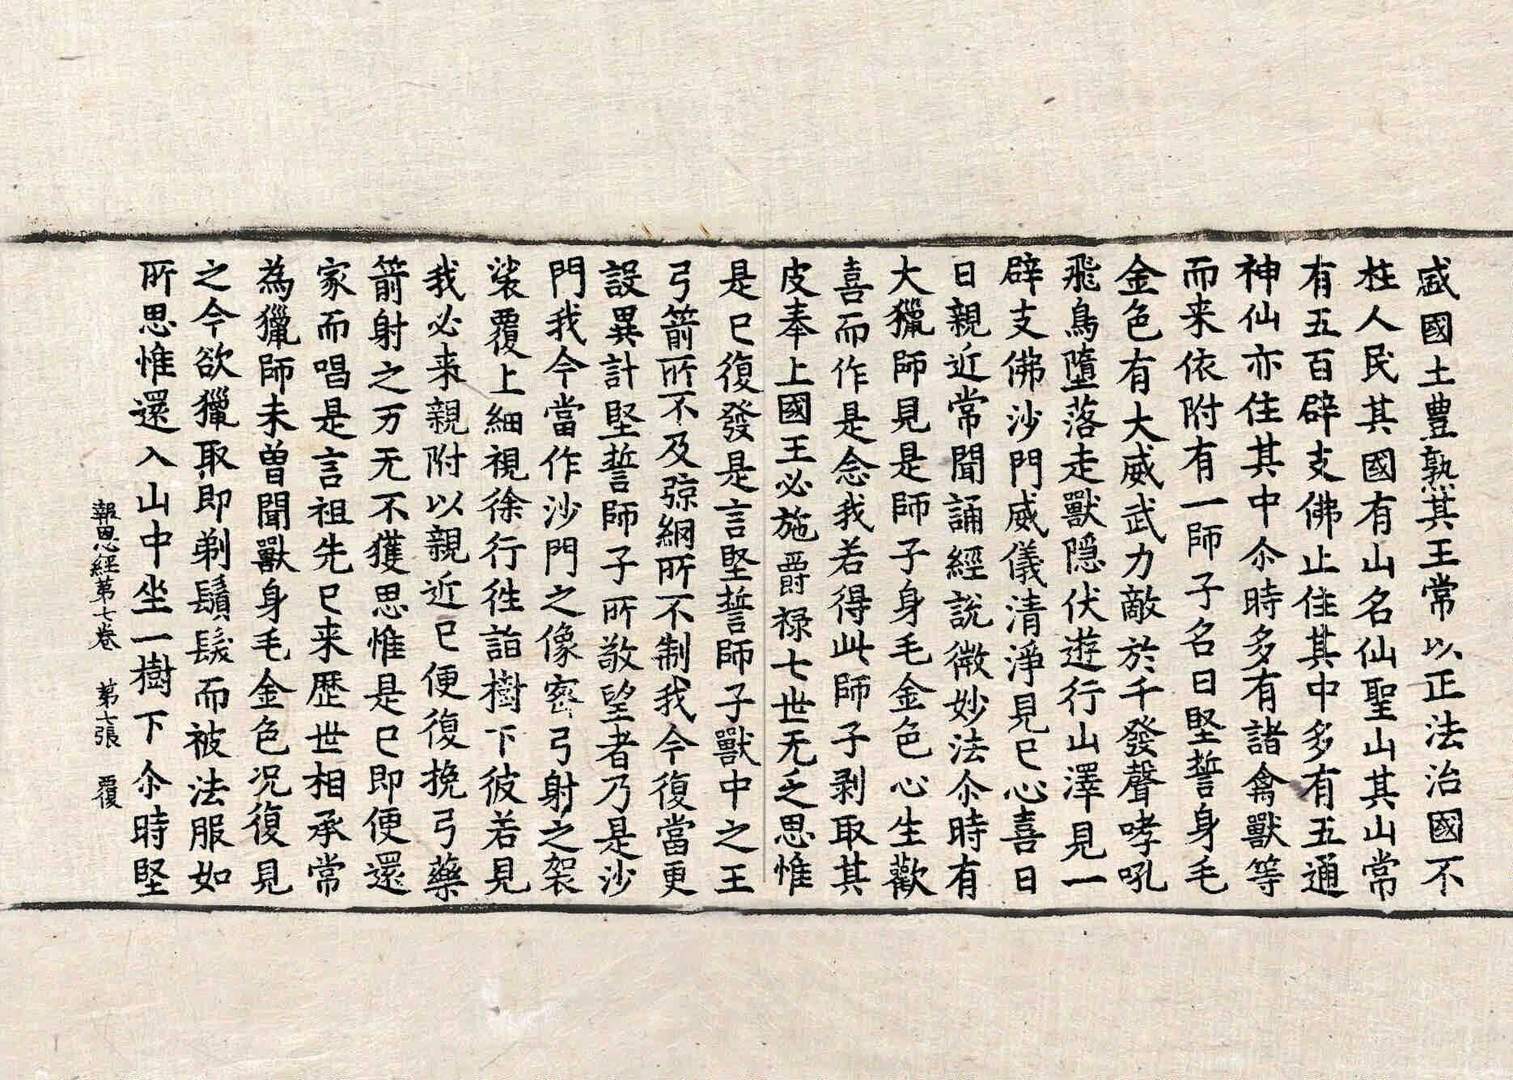 盛國土豊熟其王常以正法治國不
枉人民其國有山名仙聖山其山常
有五百辟支佛止住其中多有五通
神仙亦住其中尒時多有諸禽獸等
而来依附有一師子名曰堅誓身毛
金色有大威武力敵於千發聲哮吼
飛鳥墮落走獸隠伏遊行山澤見一
辟支佛沙門威儀清淨見已心喜日
日親近常聞誦經說微妙法尒時有
大獵師見是師子身毛金色心生歡
喜而作是念我若得此師子剥取其
皮奉上國王必施爵禄七世无乏思惟
是已復發是言堅誓師子獸中之王
弓箭所不及弶網所不制我今復當更
設異計堅誓師子所敬望者乃是沙
門我今當作沙門之像密弓射之袈
裟覆上細視徐行徃詣樹下彼若見
我必来親附以親近已便復挽弓藥
箭射之万无不獲思惟是已即便還
家而唱是言祖先已来歴世相承常
為獵師未曽聞獸身毛金色况復見
之今欲獵取即剃鬚髮而被法服如
所思惟還入山中坐一樹下尒時堅
報恩經第七卷 第七張 覆